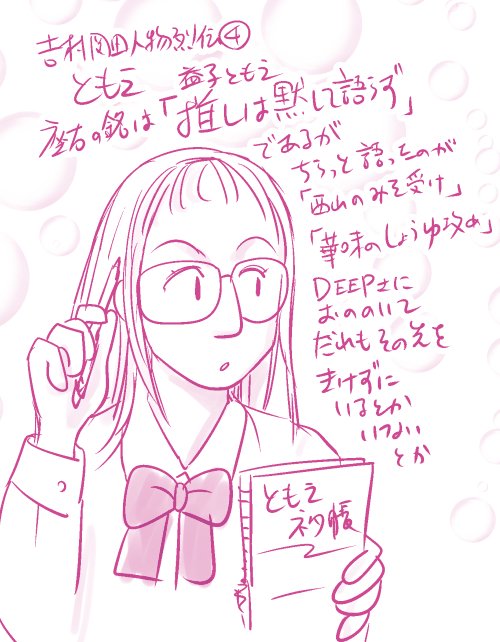 吉村図四人物列伝④
ともえ 益子ともえ
座右の銘は「推しは黙して語らず」
であるが
ちらっと語ったのが
「西山のみそ受け」
「華味のしょうゆ攻め」
DEEPさに
おののいて
だれもその先を
きけずに
いるとか
いないとか
ともえ
ネタ帳